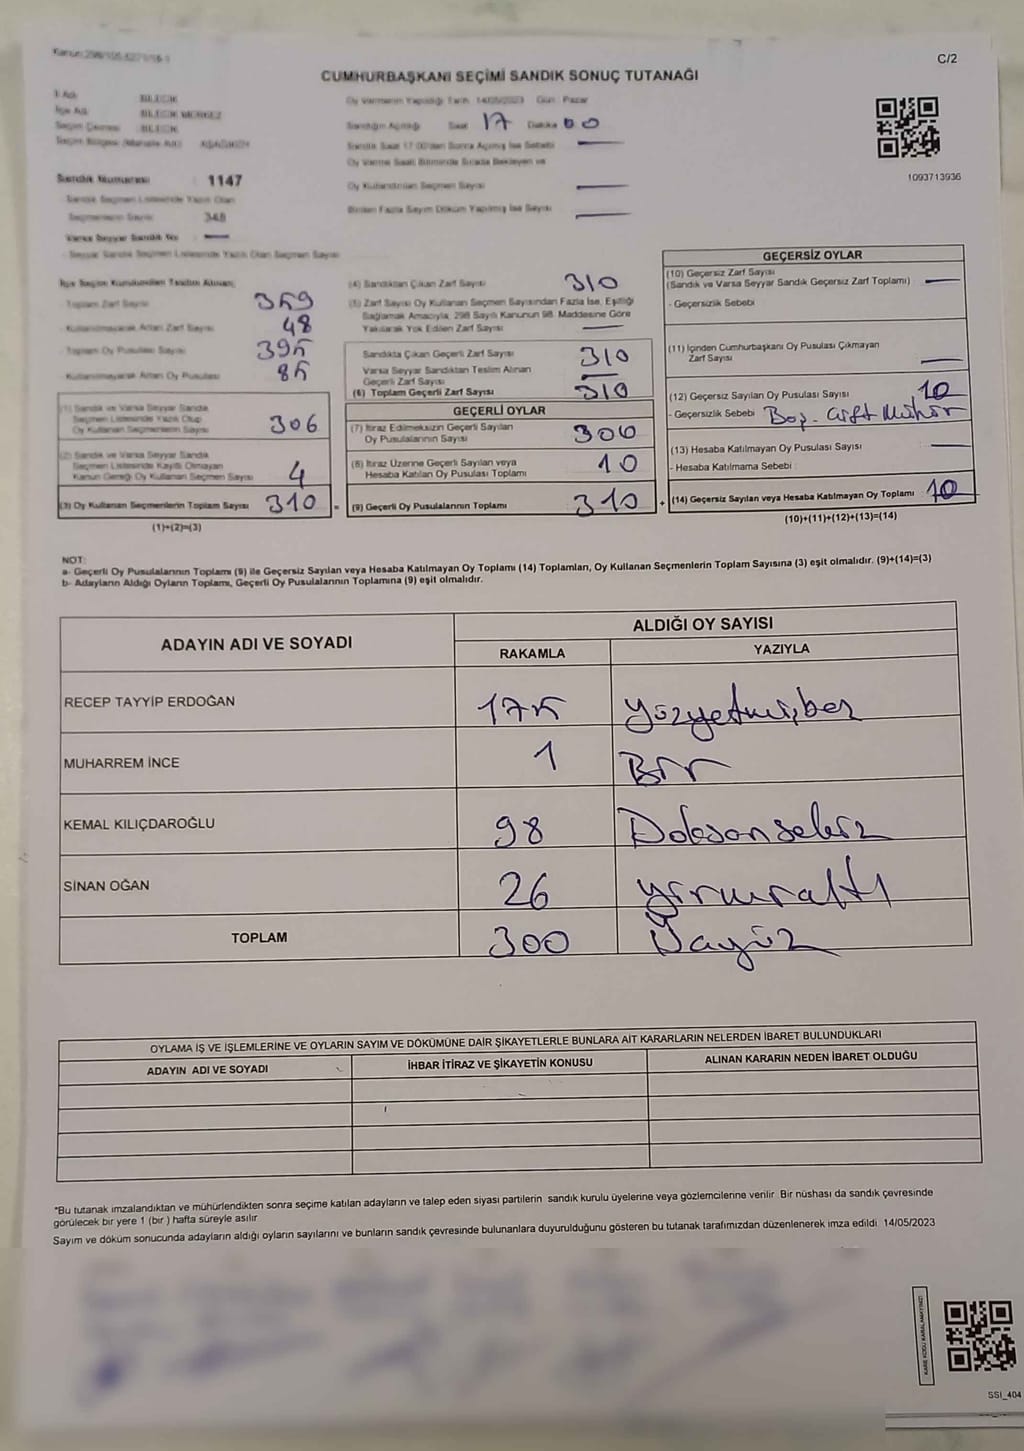 C/2
CUMHURBAŞKANI SEÇİMİ SANDIK SONUÇ TUTANAĞI
İl Adı BİLECİK
İlçe Adı BİLECİK MERKEZ
Seçim Çevresi BİLECİK
Oy Vermenin Yapıldığı Tarih 14/05/2023 Gün Pazar
Sandığın Açıldığı Saat 17 Dakika 00
Sandık Saat 17:00'den Sonra Açılmış İse Sebebi
Oy Verme Saati Bitiminde Sırada Bekleyen ve
Oy Kullandırılan Seçmen Sayısı
Birden Fazla Sayım Döküm Yapılmış İse Sayısı
1093713936
Sandık Numarası 1147
Sandık Seçmen Listesinde Yazılı Olan
Seçmenlerin Sayısı 348
Varsa Seyyar Sandık No
Seyyar Sandık Seçmen Listesinde Yazılı Olan Seçmen Sayısı
İlçe Seçim Kurulundan Teslim Alınan;
Toplam Zarf Sayısı 359
Kullanılmayarak Artan Zarf Sayısı 48
Toplam Oy Pusulası Sayısı 395
Kullanılmayarak Artan Oy Pusulası 85
(1) Sandık ve Varsa Seyyar Sandık
Seçmen Listesinde Yazılı Olup
Oy Kullanan Seçmenlerin Sayısı 306
(2) Sandık ve Varsa Seyyar Sandık
Seçmen Listesinde Kayıtlı Olmayan
Kanun Gereği Oy Kullanan Seçmen Sayısı 4
(3) Oy Kullanan Seçmenlerin Toplam Sayısı 310
(1)+(2)=(3)
(4) Sandıktan Çıkan Zarf Sayısı 310
(5) Zarf Sayısı Oy Kullanan Seçmen Sayısından Fazla İse, Eşitliği
Sağlamak Amacıyla, 298 Sayılı Kanunun 98. Maddesine Göre
Yakılarak Yok Edilen Zarf Sayısı
Sandıkta Çıkan Geçerli Zarf Sayısı 310
Varsa Seyyar Sandıktan Teslim Alınan
Geçerli Zarf Sayısı
(6) Toplam Geçerli Zarf Sayısı 310
GEÇERLİ OYLAR
(7) İtiraz Edilmeksizin Geçerli Sayılan
Oy Pusulalarının Sayısı 300
(8) İtiraz Üzerine Geçerli Sayılan veya
Hesaba Katılan Oy Pusulası Toplamı 10
= (9) Geçerli Oy Pusulalarının Toplamı 310
GEÇERSİZ OYLAR
(10) Geçersiz Zarf Sayısı
(Sandık ve Varsa Seyyar Sandık Geçersiz Zarf Toplamı)
- Geçersizlik Sebebi
(11) İçinden Cumhurbaşkanı Oy Pusulası Çıkmayan
Zarf Sayısı
(12) Geçersiz Sayılan Oy Pusulası Sayısı 10
- Geçersizlik Sebebi Boş - Çift Mühür
(13) Hesaba Katılmayan Oy Pusulası Sayısı
- Hesaba Katılmama Sebebi
+ (14) Geçersiz Sayılan veya Hesaba Katılmayan Oy Toplamı 10
(10)+(11)+(12)+(13)=(14)
NOT:
a- Geçerli Oy Pusulalarının Toplamı (9) ile Geçersiz Sayılan veya Hesaba Katılmayan Oy Toplamı (14) Toplamları, Oy Kullanan Seçmenlerin Toplam Sayısına (3) eşit olmalıdır. (9)+(14)=(3)
b- Adayların Aldığı Oyların Toplamı, Geçerli Oy Pusulalarının Toplamına (9) eşit olmalıdır.
ADAYIN ADI VE SOYADI ALDIĞI OY SAYISI
RAKAMLA YAZIYLA
RECEP TAYYİP ERDOĞAN 175 Yüzyetmişbeş
MUHARREM İNCE 1 Bir
KEMAL KILIÇDAROĞLU 98 Doksansekiz
SİNAN OĞAN 26 yirmialtı
TOPLAM 300 Üçyüz
OYLAMA İŞ VE İŞLEMLERİNE VE OYLARIN SAYIM VE DÖKÜMÜNE DAİR ŞİKAYETLERLE BUNLARA AİT KARARLARIN NELERDEN İBARET BULUNDUKLARI
ADAYIN ADI VE SOYADI İHBAR İTİRAZ VE ŞİKAYETİN KONUSU ALINAN KARARIN NEDEN İBARET OLDUĞU
*Bu tutanak imzalandıktan ve mühürlendikten sonra seçime katılan adayların ve talep eden siyasi partilerin sandık kurulu üyelerine veya gözlemcilerine verilir. Bir nüshası da sandık çevresinde
görülecek bir yere 1 (bir) hafta süreyle asılır.
Sayım ve döküm sonucunda adayların aldığı oyların sayılarını ve bunların sandık çevresinde bulunanlara duyurulduğunu gösteren bu tutanak tarafımızdan düzenlenerek imza edildi. 14/05/2023
KARE KODU KARALAMAYINIZ!
SSI_404